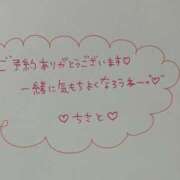 ご予約ありがとうございます♡
一緒に気もちよくなろうねー♡
♡ちさと♡